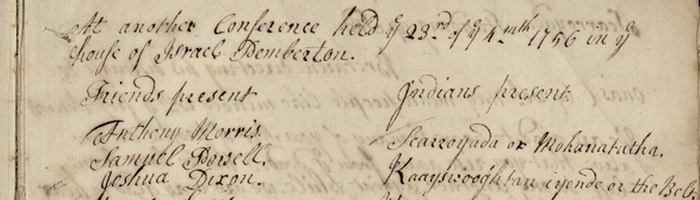 At another Conference held ye 23rd of ye 4 mth 1756 in ye
house of Israel Pemberton.
Friends present
Indians present
Anthony Morris.
Scarroyada or Mohanatatha.
Samuel Powell.
Joshua Dixon.
or the Belt